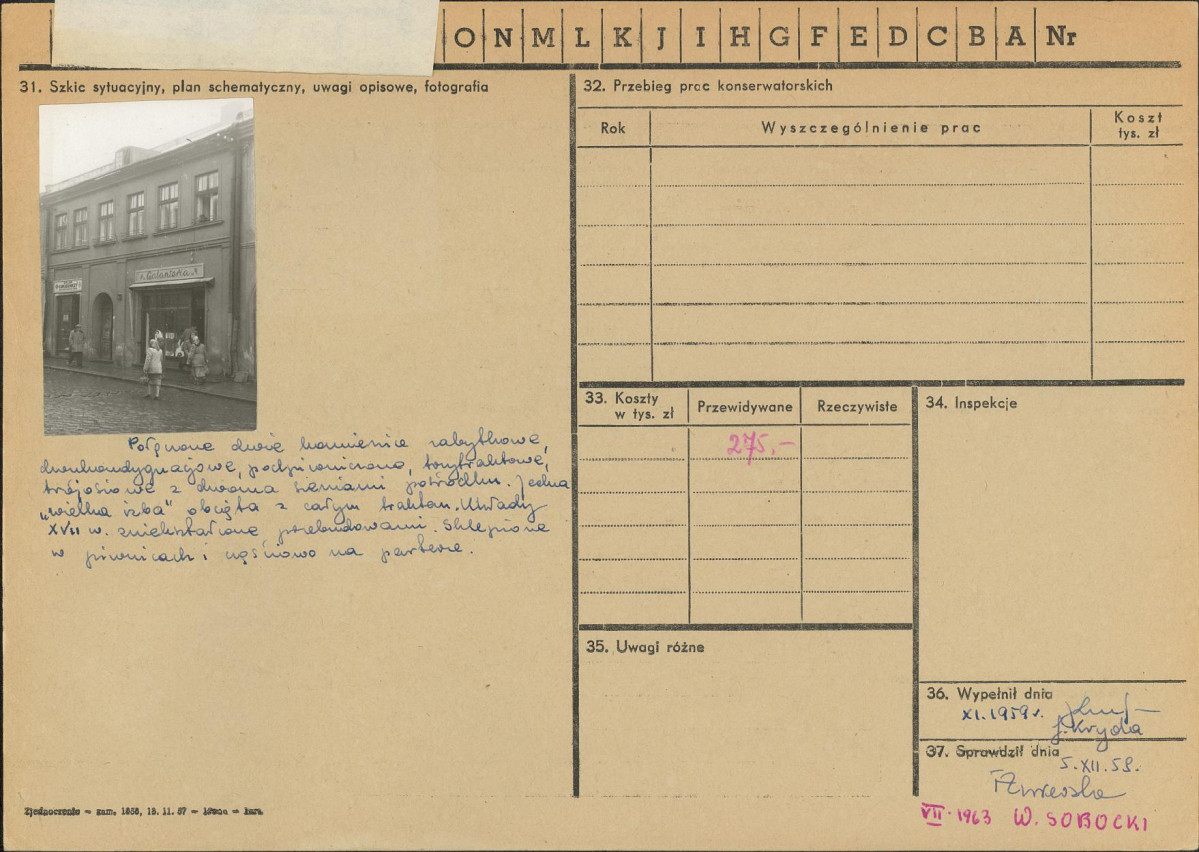 O N M L K J I H G F E D C B A Nr
31. Szkic sytuacyjny, plan schematyczny, uwagi opisowe, fotografia
Galanteria
Połączone dwie kamienice zabytkowe,
dwukondygnacyjowe, podpiwniczone, trzytraktowe,
trójosiowe z dwoma sieniami pośrodku. Jedna
„wielka izba" objęta z całym traktem. Układy
XVII w. zniekształcone przebudowami. Sklepione
w piwnicach i częściowo na parterze.
32. Przebieg prac konserwatorskich
Rok Wyszczególnienie prac Koszt
tys. zł
33. Koszty
w tys. zł Przewidywane Rzeczywiste
275,-
34. Inspekcje
35. Uwagi różne
36. Wypełnił dnia
XI.1959r.
J. Kryda
37. Sprawdził dnia
5.XII.59.
VII. 1963 W. SOBOCKI
Zjednoczenie — zam. 1656, 16. 11. 57